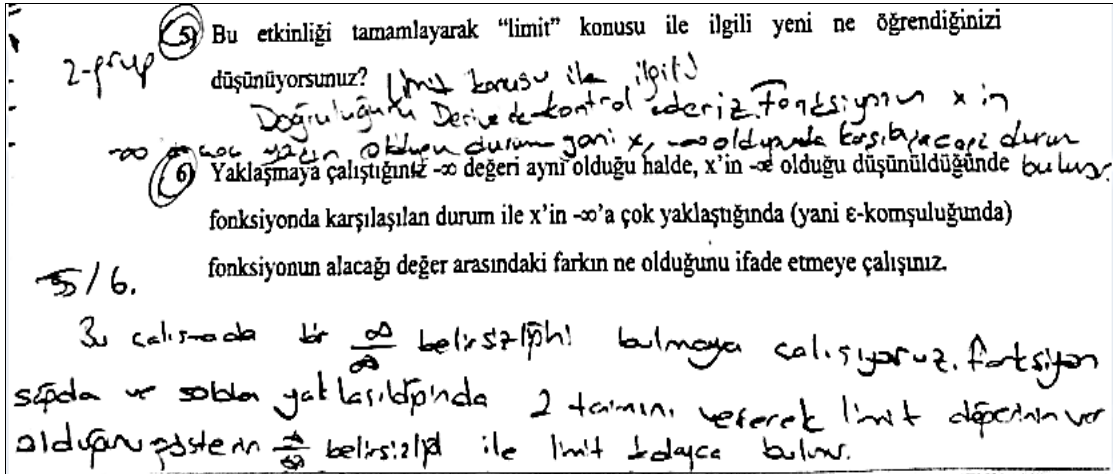 5) Bu etkinliği tamamlayarak “limit” konusu ile ilgili yeni ne öğrendiğinizi
2-grup
düşünüyorsunuz? Limit konusu ile ilgili
Doğruluğunu Derive de kontrol ederiz. Fonksiyonun x in
-∞ yakın olduğu durum yani x, -∞ olduğunda karşılaşacağı durum
6) Yaklaşmaya çalıştığınız -∞ değeri ayni olduğu halde, x’in -∞ olduğu düşünüldüğünde bulunur.
fonksiyonda karşılaşılan durum ile x’in -∞’a çok yaklaştığında (yani ε-komşuluğunda)
fonksiyonun alacağı değer arasındaki farkın ne olduğunu ifade etmeye çalışınız.
5/6.
Bu çalışmada bir ∞/∞ belirsizliği bulmaya çalışıyoruz. fonksiyon
sağda ve soldan yaklaşıldığında 2 tanımını vererek limit değerinin var
olduğunu gösterir ∞/∞ belirsizliği ile limit kolayca bulunur.